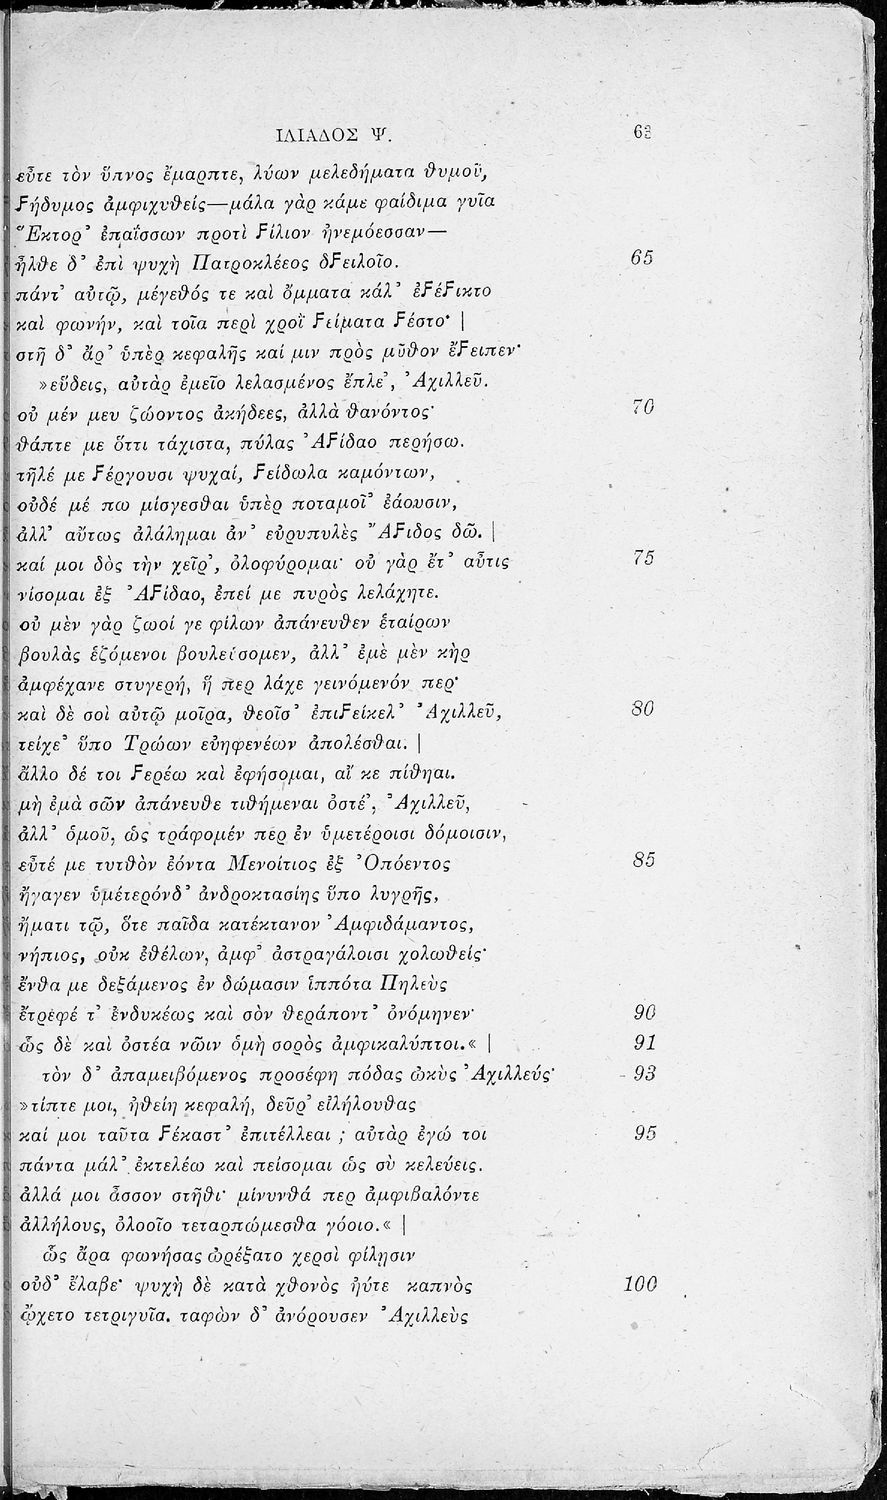 ΙΛΙΑΔΟΣ Ψ. 63
εὖτε τὸν ὕπνος ἔμαρπτε, λύων μελεδήματα θυμοῦ,
Ϝήδυμος ἀμφιχυθείς—μάλα γὰρ κάμε φαίδιμα γυῖα
Ἕκτορ’ ἐπαΐσσων προτὶ Ϝίλιον ἠνεμόεσσαν—
ἦλθε δ’ ἐπὶ ψυχὴ Πατροκλέεος δϜειλοῖο. 65
πάντ’ αὐτῷ, μέγεθός τε καὶ ὄμματα κάλ’ ἐϜέϜικτο
καὶ φωνήν, καὶ τοῖα περὶ χροῒ Ϝείματα Ϝέστο· |
στῆ δ’ ἄρ’ ὑπὲρ κεφαλῆς καί μιν πρὸς μῦθον ἔϜειπεν·
»εὕδεις, αὐτὰρ ἐμεῖο λελασμένος ἔπλε’, Ἀχιλλεῦ.
οὐ μέν μευ ζώοντος ἀκήδεες, ἀλλὰ θανόντος· 70
θάπτε με ὅττι τάχιστα, πύλας ἈϜίδαο περήσω.
τῆλέ με Ϝέργουσι ψυχαί, Ϝείδωλα καμόντων,
οὐδέ μέ πω μίσγεσθαι ὑπὲρ ποταμοῖ’ ἐάουσιν,
ἀλλ’ αὔτως ἀλάλημαι ἀν’ εὐρυπυλὲς ἌϜιδος δῶ. |
καί μοι δὸς τὴν χεῖρ’, ὀλοφύρομαι· οὐ γὰρ ἔτ’ αὖτις 75
νίσομαι ἐξ ἈϜίδαο, ἐπεί με πυρὸς λελάχητε.
οὐ μὲν γὰρ ζωοί γε φίλων ἀπάνευθεν ἑταίρων
βουλὰς ἑζόμενοι βουλεύσομεν, ἀλλ’ ἐμὲ μὲν κὴρ
ἀμφέχανε στυγερή, ἥ περ λάχε γεινόμενόν περ·
καὶ δὲ σοὶ αὐτῷ μοῖρα, θεοῖσ’ ἐπιϜείκελ’ Ἀχιλλεῦ, 80
τείχε’ ὕπο Τρώων εὐηφενέων ἀπολέσθαι. |
ἄλλο δέ τοι Ϝερέω καὶ ἐφήσομαι, αἴ κε πίθηαι.
μὴ ἐμὰ σῶν ἀπάνευθε τιθήμεναι ὀστέ’, Ἀχιλλεῦ,
ἀλλ’ ὁμοῦ, ὡς τράφομέν περ ἐν ὑμετέροισι δόμοισιν,
εὖτέ με τυτθὸν ἐόντα Μενοίτιος ἐξ Ὀπόεντος 85
ἤγαγεν ὑμέτερόνδ’ ἀνδροκτασίης ὕπο λυγρῆς,
ἤματι τῷ, ὅτε παῖδα κατέκτανον Ἀμφιδάμαντος,
νήπιος, οὐκ ἐθέλων, ἀμφ’ ἀστραγάλοισι χολωθείς·
ἔνθα με δεξάμενος ἐν δώμασιν ἱππότα Πηλεὺς
ἔτρεφέ τ’ ἐνδυκέως καὶ σὸν θεράποντ’ ὀνόμηνεν· 90
ὣς δὲ καὶ ὀστέα νῶιν ὁμὴ σορὸς ἀμφικαλύπτοι.« | 91
τὸν δ’ ἀπαμειβόμενος προσέφη πόδας ὠκὺς Ἀχιλλεύς· 93
»τίπτε μοι, ἠθείη κεφαλή, δεῦρ’ εἰλήλουθας
καί μοι ταῦτα Ϝέκαστ’ ἐπιτέλλεαι ; αὐτὰρ ἐγώ τοι 95
πάντα μάλ’ ἐκτελέω καὶ πείσομαι ὡς σὺ κελεύεις.
ἀλλά μοι ἆσσον στῆθι· μίνυνθά περ ἀμφιβαλόντε
ἀλλήλους, ὀλοοῖο τεταρπώμεσθα γόοιο.« |
ὣς ἄρα φωνήσας ὠρέξατο χερσὶ φίλῃσιν
οὐδ’ ἔλαβε· ψυχὴ δὲ κατὰ χθονὸς ἠύτε καπνὸς 100
ᾤχετο τετριγυῖα. ταφὼν δ’ ἀνόρουσεν Ἀχιλλεὺς